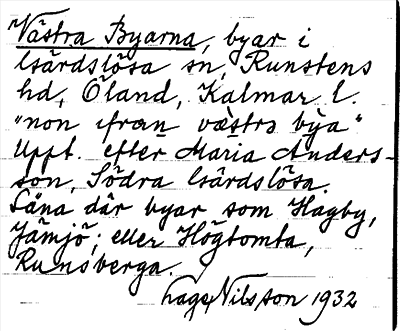 Västra Byarna, byar i
Gärdslösa sn, Runstens
hd, Öland, Kalmar l.
"non ifran västrs bya"
Uppt. efter Maria Anders-
son, Södra Gärdslösa.
Såna där byar som Hagby,
Jämjö; eller Högtomta,
Runsberga.
Hage Nilsson 1932